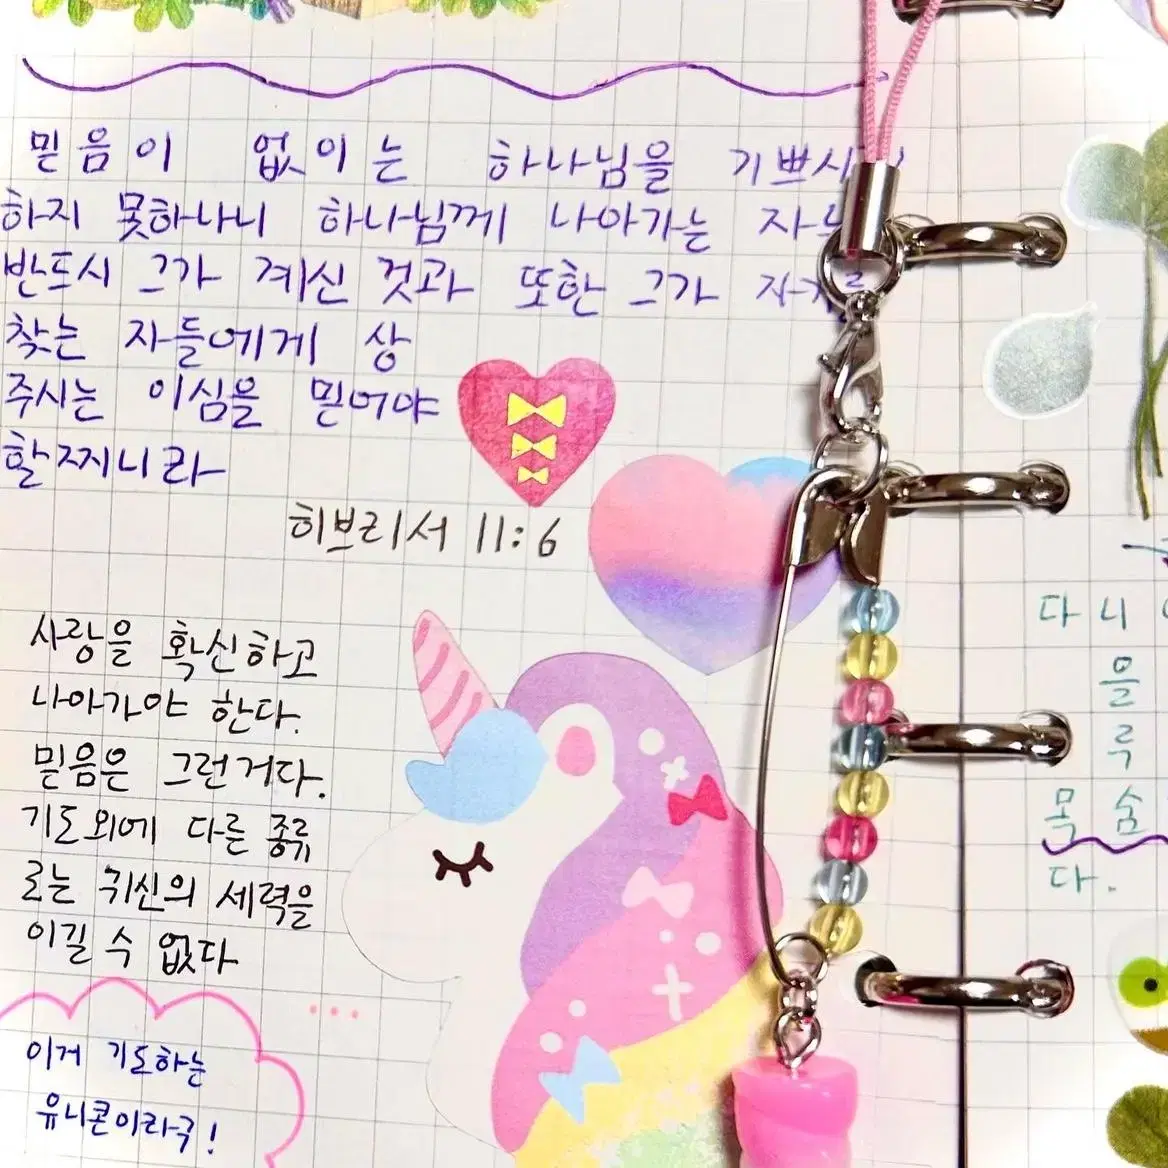 믿음이 없이는 하나님을 기쁘시
하지 못하나니 하나님께 나아가는
반드시 그가 계신 것과 또한 그가
찾는 자들에게 상
주시는 이심을 믿어야
할찌니라
히브리서 11:6
사랑을 확신하고
나아가야 한다.
믿음은 그런거다.
기도외에 다른 종류
로는 귀신의 세력을
이길 수 없다
이거 기도하는
유니콘이라구!
다니
을
루
목숨
다.